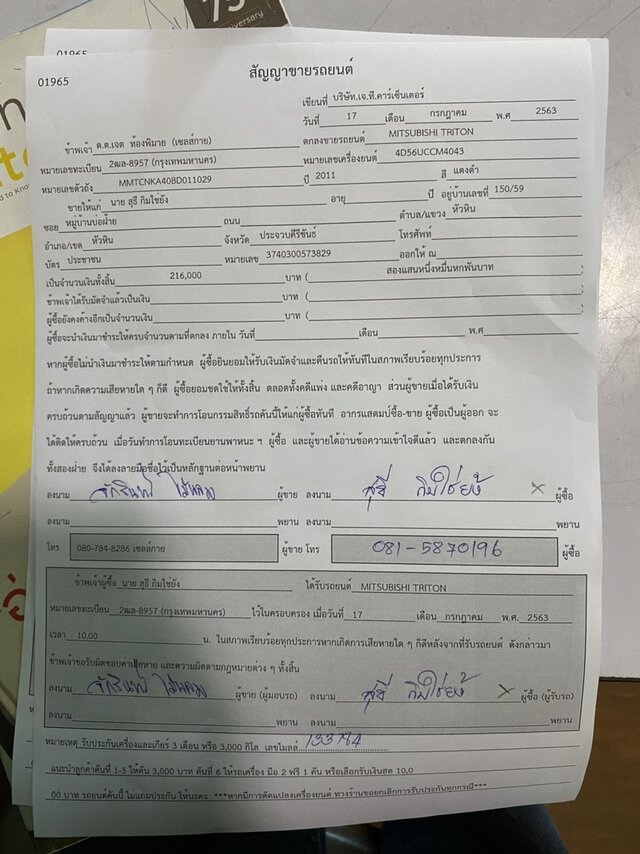 75
niversary
01965
01965
สัญญาขายรถยนต์
เขียนที่ บริษัท.เจ.ที.คาร์เซ็นเตอร์
วันที่ 17 เดือน กรกฎาคม พ.ศ 2563
ข้าพเจ้า ด.ต.เจต ท้องพิมาย (เซลส์กาย) ตกลงขายรถยนต์ MITSUBISHI TRITON
หมายเลขทะเบียน 2ฒล-8957 (กรุงเทพมหานคร) หมายเลขเครื่องยนต์ 4D56UCCM4043
หมายเลขตัวถัง MMTCNKA40BD011029 ปี 2011 สี แดงดำ
ขายให้แก่ นาย สุธี กิมใช่ยัง อายุ ปี อยู่บ้านเลขที่ 150/59
ซอย หมู่บ้านบ่อฝ้าย ถนน ตำบล/แขวง หัวหิน
อำเภอ/เขต หัวหิน จังหวัด ประจวบคีรีขันธ์ โทรศัพท์
บัตร ประชาชน หมายเลข 3740300573829 ออกให้ ณ
เป็นจำนวนเงินทั้งสิ้น 216,000 บาท ( สองแสนหนึ่งหมื่นหกพันบาท )
ข้าพเจ้าได้รับมัดจำแล้วเป็นเงิน บาท ( )
ผู้ซื้อยังคงค้างอีกเป็นจำนวนเงิน บาท ( )
ผู้ซื้อจะนำเงินมาชำระให้ครบจำนวนตามที่ตกลง ภายใน วันที่ เดือน พ.ศ
หากผู้ซื้อไม่นำเงินมาชำระให้ตามกำหนด ผู้ซื้อยินยอมให้ริบเงินมัดจำและคืนรถให้ทันทีในสภาพเรียบร้อยทุกประการ
ถ้าหากเกิดความเสียหายใด ๆ ก็ดี ผู้ซื้อยอมชดใช้ให้ทั้งสิ้น ตลอดทั้งคดีแพ่ง และคดีอาญา ส่วนผู้ขายเมื่อได้รับเงิน
ครบถ้วนตามสัญญาแล้ว ผู้ขายจะทำการโอนกรรมสิทธิ์รถคันนี้ให้แก่ผู้ซื้อทันที อากรแสตมป์ซื้อ-ขาย ผู้ซื้อเป็นผู้ออก จะ
ได้ติดให้ครบถ้วน เมื่อวันทำการโอนทะเบียนยานพาหนะ ฯ ผู้ซื้อ และผู้ขายได้อ่านข้อความเข้าใจดีแล้ว และตกลงกัน
ทั้งสองฝ่าย จึงได้ลงลายมือชื่อไว้เป็นหลักฐานต่อหน้าพยาน
ลงนาม ผู้ขาย ลงนาม สุธี กิมใช่ยัง × ผู้ซื้อ
ลงนาม พยาน ลงนาม พยาน
โทร 080-784-8286 เซลล์กาย ผู้ขาย โทร 081-5870196 ผู้ซื้อ
ข้าพเจ้าผู้ซื้อ นาย สุธี กิมใช่ยัง ได้รับรถยนต์ MITSUBISHI TRITON
หมายเลขทะเบียน 2ฒล-8957 (กรุงเทพมหานคร) ไว้ในครอบครอง เมื่อวันที่ 17 เดือน กรกฎาคม พ.ศ. 2563
เวลา 10.00 น. ในสภาพเรียบร้อยทุกประการหากเกิดการเสียหายใด ๆ ก็ดีหลังจากที่รับรถยนต์ ดังกล่าวมา
ข้าพเจ้าขอรับผิดชอบค่าเสียหาย และความผิดตามกฎหมายต่าง ๆ ทั้งสิ้น
ลงนาม ผู้ขาย (ผู้มอบรถ) ลงนาม สุธี กิมใช่ยัง × ผู้ซื้อ (ผู้รับรถ)
ลงนาม พยาน ลงนาม พยาน
หมายเหตุ รับประกันเครื่องและเกียร์ 3 เดือน หรือ 3,000 กิโล เลขไมลล์ 133784
แนะนำลูกค้าคันที่ 1-5 ให้คัน 3,000 บาท คันที่ 6 ให้รถเครื่อง มือ 2 ฟรี 1 คัน หรือเลือกรับเงินสด 10,0
00 บาท รถยนต์คันนี้ ไม่แถมประกัน ให้นะคะ ***หากมีการดัดแปลงเครื่องยนต์ ทางร้านขอยกเลิกการรับประกันทุกกรณี***